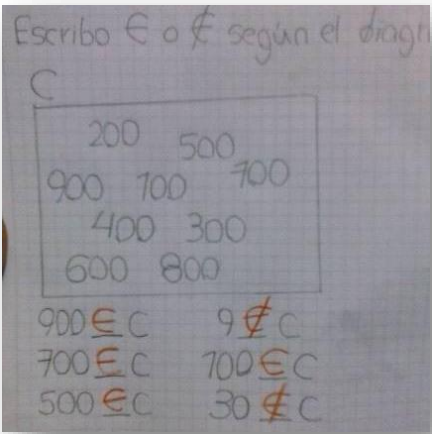 Escribo ∈ o ∉ según el diagr
C
200 500
900 100 700
400 300
600 800
900 ∈ C 9 ∉ C
700 ∈ C 100 ∈ C
500 ∈ C 30 ∉ C